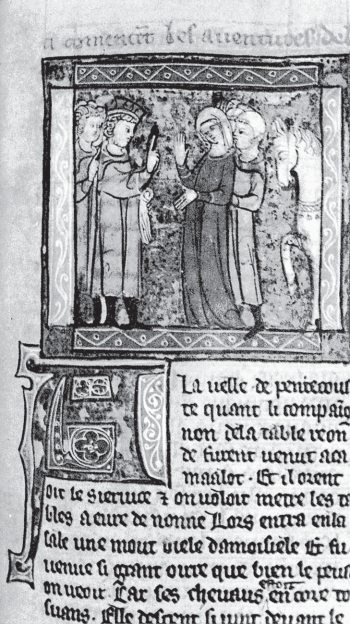 a comencēt les auentures del
A La uelle de pentecous
te quant li compaig
non dela table reon
de furent uenut a ca
maalot · Et il orent
oit le seruice ⁊ on uoloit metre les ta
bles a eure de nonne Lors entra enla
sale une mout biele damoisiele Et fu
uenue si grant oirre que bien le peut
on ueoir Car ses cheuaus en core to
suans. Elle descent si uint deuant le